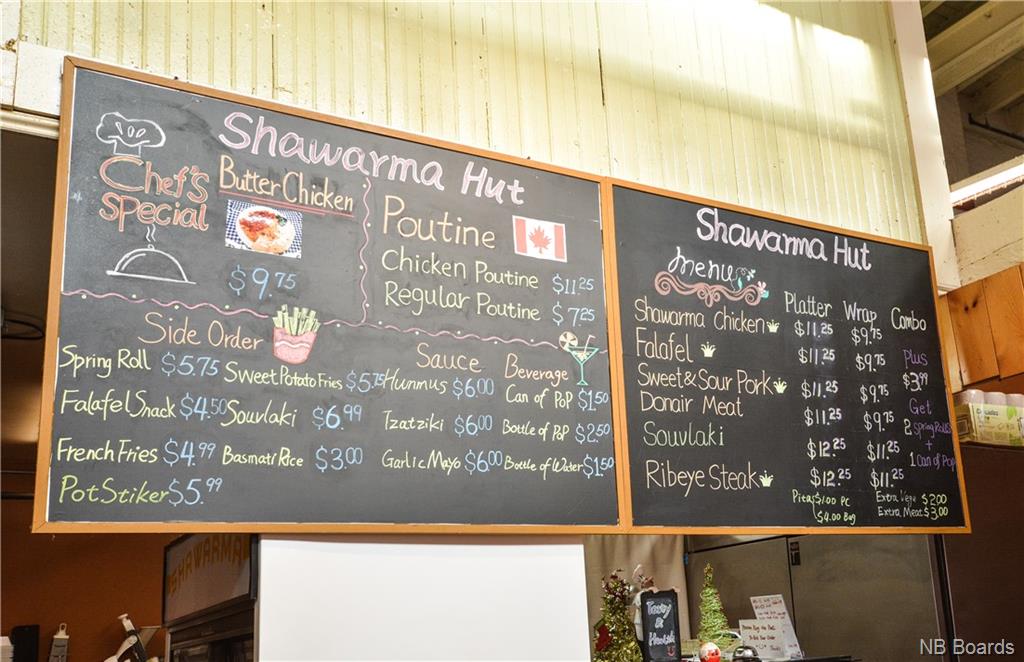 Shawarma Hut
Chef's
Special
Butter Chicken
$9.75
Poutine
Chicken Poutine $11.25
Regular Poutine $7.25
Side Order
Spring Roll $5.75
Falafel Snack $4.50
French Fries $4.99
Pot Stiker $5.99
Sweet Potato Fries $5.75
Souvlaki $6.99
Basmati Rice $3.00
Sauce
Hunmus $6.00
Tzatziki $6.00
Garlic Mayo $6.00
Beverage
Can of PoP $1.50
Bottle of PoP $2.50
Bottle of Water $1.50
Shawarma Hut
Menu
Platter Wrap Combo
Shawarma Chicken $11.25 $9.75
Falafel $11.25 $9.75
Sweet & Sour Pork $11.25 $9.75
Donair Meat $11.25 $9.75
Souvlaki $12.25 $11.25
Ribeye Steak $12.25 $11.25
Plus
$3.99
Get
2
Spring Rolls
+
1 Can of PoP
Pitas $1.00 PC
$4.00 Bag
Extra Vege $2.00
Extra Meat $3.00
SHAWARMA
NB Boards